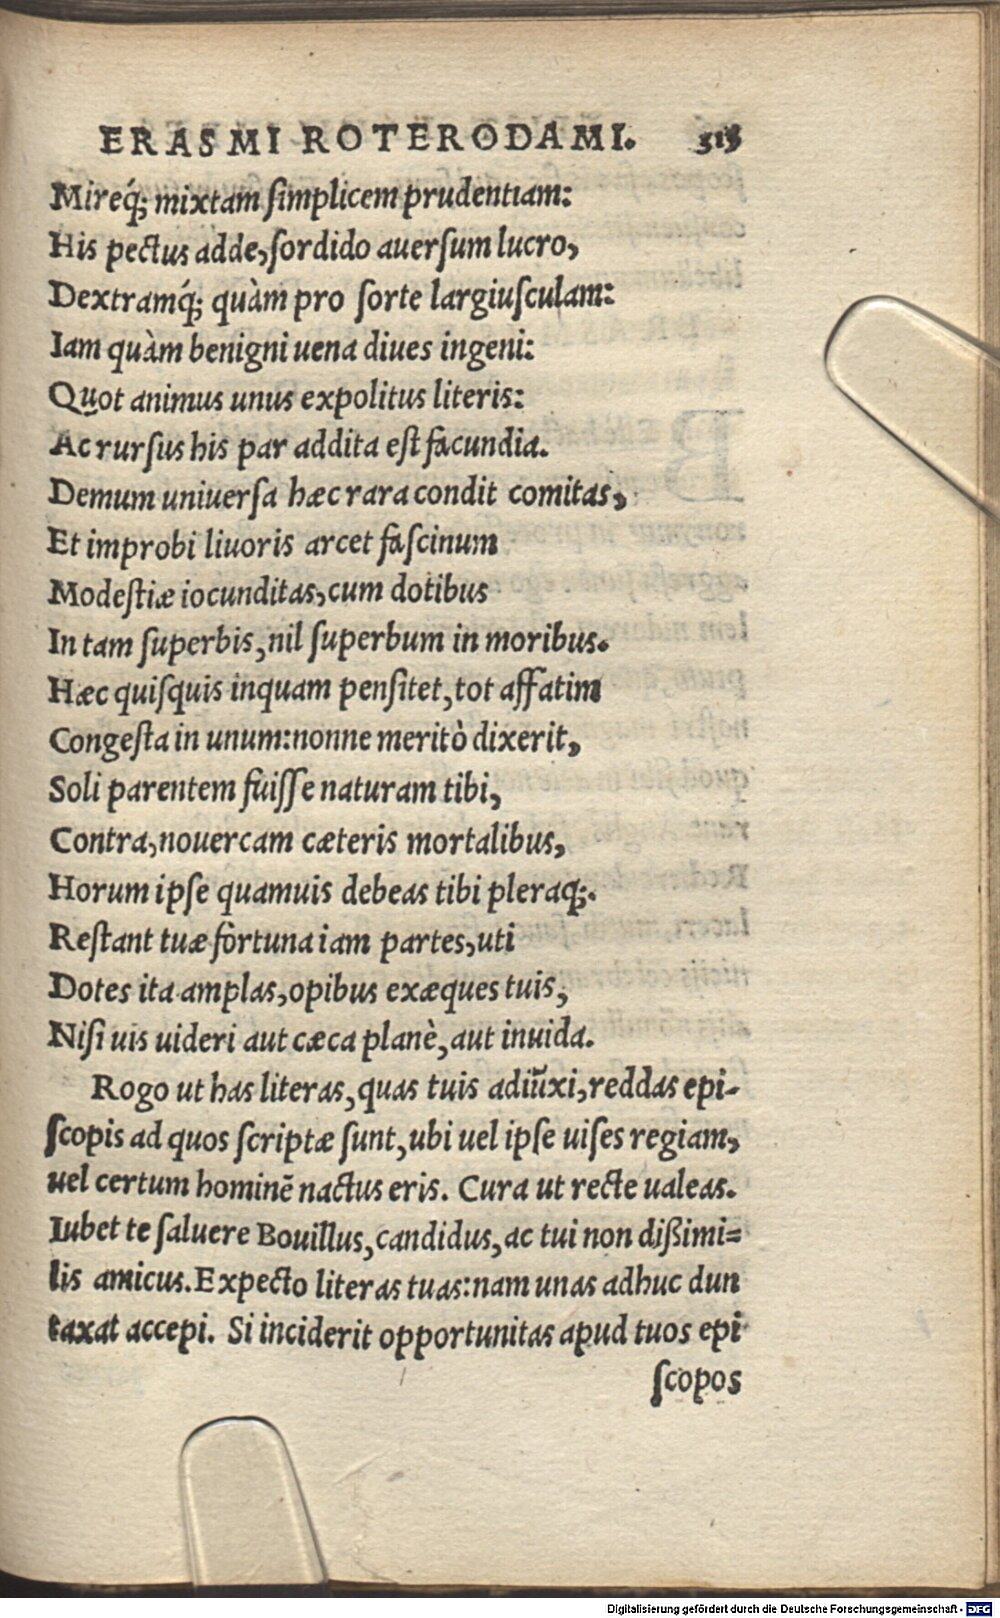 ERASMI ROTERODAMI. 315
Mireq́; mixtam ſimplicem prudentiam:
His pectus adde, ſordido auerſum lucro,
Dextramq́; quàm pro ſorte largiuſculam:
Iam quàm benigni uena diues ingeni:
Quot animus unus expolitus literis:
Ac rurſus his par addita eſt facundia.
Demum uniuerſa hæc rara condit comitas,
Et improbi liuoris arcet faſcinum
Modeſtiæ iocunditas, cum dotibus
In tam ſuperbis, nil ſuperbum in moribus.
Hæc quiſquis inquam penſitet, tot affatim
Congeſta in unum: nonne meritò dixerit,
Soli parentem fuiſſe naturam tibi,
Contra, nouercam cæteris mortalibus,
Horum ipſe quamuis debeas tibi pleraq;.
Reſtant tuæ fortuna iam partes, uti
Dotes ita amplas, opibus exæques tuis,
Niſi uis uideri aut cæca planè, aut inuida.
Rogo ut has literas, quas tuis adiūxi, reddas epi-
ſcopis ad quos ſcriptæ ſunt, ubi uel ipſe uiſes regiam,
uel certum hominē nactus eris. Cura ut recte ualeas.
Iubet te ſaluere Bouillus, candidus, ac tui non dißimi=
lis amicus. Expecto literas tuas: nam unas adhuc dun
taxat accepi. Si inciderit opportunitas apud tuos epi
ſcopos
Digitalisierung gefördert durch die Deutsche Forschungsgemeinschaft - DFG